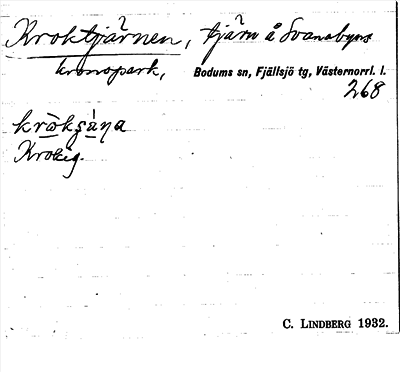 Kroktjärnen, tjärn å Svanabyns
kronopark, Bodums sn, Fjällsjö tg, Västernorrl. l.
268
Krokig.
C. LINDBERG 1932.